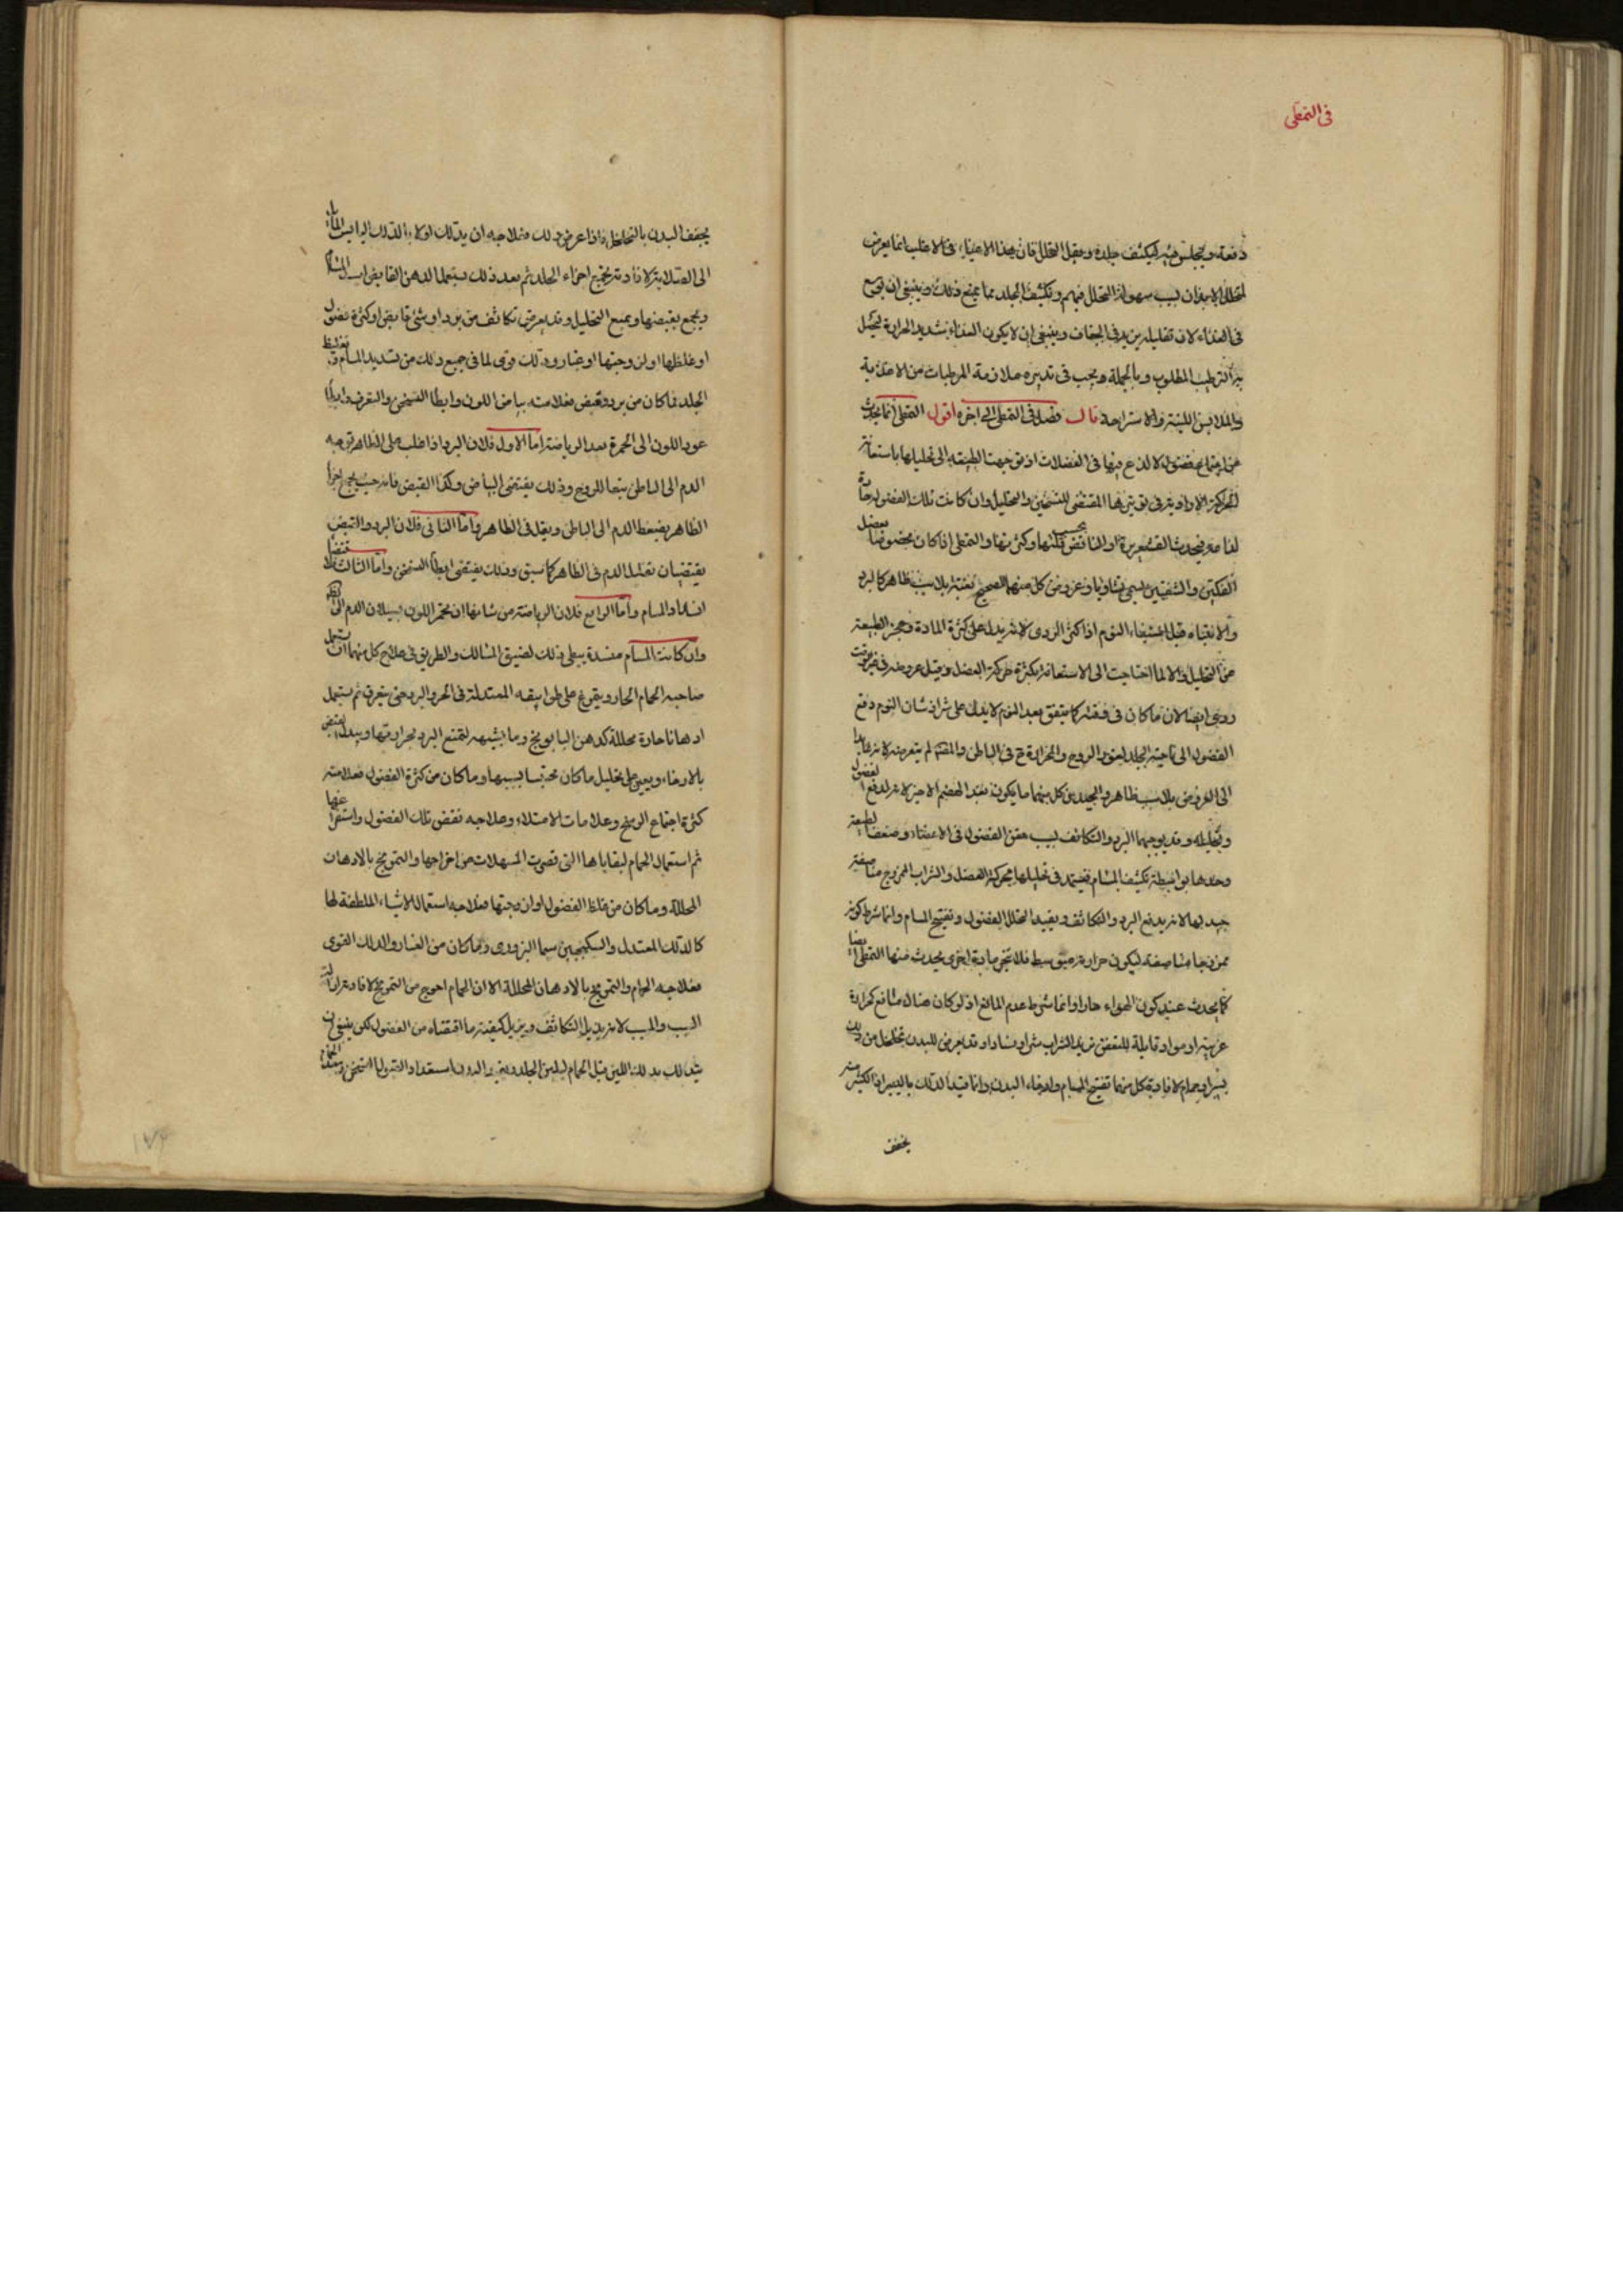 في التمطي
دفعة ويجلس فيه ليكثف جلده ويقل التحلل فان هذا الاعياء في الاغلب انما يعرض
لمتخلخلي الابدان لسبب سهولة التحلل فيهم وتكثيف الجلد مما يمنع ذلك وينبغي ان يوسع
في الغذاء لان تقليله يزيد في الجفاف وينبغي ان لا يكون الغذاء شديد الحرارة ليحصل
به الترطيب المطلوب وبالجملة يجب في تدبيره ملازمة المرطبات من الاغذية
والملابس اللينة والاستراحة قال فصل في التمطي الى اخره اقول التمطي انما يحدث
عن اجتماع فضول لا لذع فيها في العضلات اذ توجهت الطبيعة الى تحليلها باستعانة
الحركة الارادية في تهيئتها المقتضي للتسخين والتحليل وان كانت تلك الفضول حارة
لذاعة فيحدث القشعريرة او النافض بحسب قلتها وكثرتها والتمطي اذا كان مخصوصا بعضل
الفكين والشفتين يسمى تثاوبا وعروض كل منهما للصحيح بغتة بلا سبب ظاهر كالبرد
والانتباه قبل استيفاء النوم اذا كثر الردي لانه يدل على كثرة المادة وعجز الطبيعة
عن التحليل والا لما احتاجت الى الاستعانة بكثرة حركة العضل وقيل عروضه في غير وقت
ردي ايضا لان ما كان في وقته كما يتفق بعد النوم لا يدل على شر اذ شان النوم دفع
الفضول الى ناحية الجلد لغور الروح والحرارة في الباطن
الى العروض بلا سبب ظاهر والجيد من كل منهما ما يكون بعد الهضم الاخير لانه لدفع الفضول
وتحليله وقد يوجبهما البرد والتكاثف لسبب حقن الفضول في الاعضاء وضعف الطبيعة
وحدها بواسطة تكثيف المسام فتستمد في تحليلها بحركة العضل والشراب الممزوج مناصفة
جيد لهما لانه يدفع البرد والتكاثف ويفيد تحلل الفضول وتفتيح المسام وانما شرط كونه
ممزوجا مناصفة ليكون حرارته متوسطة فلا تجر مادة اخرى يحدث منها التمطي ايضا
كما يحدث عند كون الهواء حارا وانما شرط عدم المانع اذ لو كان هناك مانع كحرارة
غريبة او مواد قابلة للتعفن يزيد الشراب شرا وفسادا وقد يعرض للبدن تخلخل من دلك
يسير او حمام لافادة كل منهما تفتيح المسام وارخاء البدن وانما قيد الدلك باليسير اذ الكثير منه
يجفف
يجفف البدن بالتحلل فاذا عرض ذلك فعلاجه ان يدلك اولا بالدلك اليابس المائل
الى الصلابة لافادته تجميع اجزاء الجلد ثم بعد ذلك يستعمل الدهن القابض ليسد المسام
ويجمع بقبضها ويمنع التحليل وقد يعرض تكاثف من برد او شيء قابض او كثرة فضول
او غلظها او لزوجتها او غبار ودلك قوي لما في جميع ذلك من تسديد المسام وتغليظ
الجلد فما كان من برد وقبض فعلامته بياض اللون وابطاء التسخن والتعرق وابطاء
عود اللون الى الحمرة بعد الرياضة اما الاول فلان البرد اذا غلب على الظاهر توجه
الدم الى الباطن تبعا للروح وذلك يقتضي البياض وكذا القبض فانه حيث يجمع اجزاء
الظاهر يضغط الدم الى الباطن ويقل في الظاهر واما الثاني فلان البرد والقبض
يقتضيان تقليل الدم في الظاهر كما سبق وذلك يقتضي ابطاء التسخن واما الثالث
انسداد المسام واما الرابع فلان الرياضة من شانها ان تحمر اللون بسيلان الدم الى الظاهر
وان كانت المسام منسدة يبطي ذلك لضيق المسالك والطريق في علاج كل منهما ان يستعمل
صاحبه الحمام الحار ويتمرغ على طوابيقه المعتدلة في الحر والبرد حتى يعرق ثم يستعمل
ادهانا حارة محللة كدهن البابونج وما يشبهه لتمنع البرد بحرارتها ويبدل القبض
بالارخاء ويعين على تحليل ما كان محتبسا بسببها وما كان من كثرة الفضول فعلامته
كثرة اجتماع الوسخ وعلامات الامتلاء وعلاجه نفض تلك الفضول واستفراغها
ثم استعمال الحمام لبقاياها التي قصرت المسهلات من اخراجها والتمريخ بالادهان
المحللة وما كان من غلظ الفضول او لزوجتها فعلاجه استعمال الاشياء الملطفة لها
كالدلك المعتدل والسكنجبين سيما البزوري وما كان من الغبار والدلك القوي
فعلاجه الحمام والتمريخ بالادهان المحللة الا ان الحمام احوج من التمريخ لافادته ازالة
السبب والمسبب لانه يزيل التكاثف ويزيل كيفية ما اقتضاه من الفضول لكن ينبغي ان
يتدلك بدلك اللين قبل الحمام ليلين الجلد ويفيد البدن استعداد القبول التسخن وبعد الحمام
١٧٤